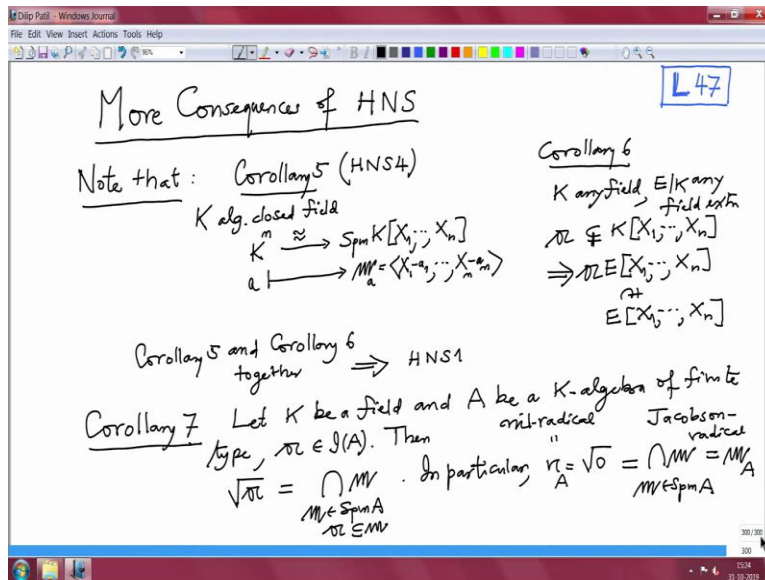 Dilip Patil - Windows Journal
File Edit View Insert Actions Tools Help
95%
B I
L 47
More Consequences of HNS
Note that : Corollary 5 (HNS4)
K alg. closed field
Kⁿ ≈⟶ Spm K[X₁, ..., Xₙ]
a ⟼ 𝔪ₐ = ⟨X₁-a₁, ..., Xₙ-aₙ⟩
Corollary 6
K any field, E/K any
field extn
𝔞 ⊊ K[X₁, ..., Xₙ]
⇒ 𝔞E[X₁, ..., Xₙ]
⊊
E[X₁, ..., Xₙ]
Corollary 5 and Corollary 6
together ⇒ HNS1
Corollary 7 Let K be a field and A be a K-algebra of finite
type, 𝔞 ∈ I(A). Then
nil-radical Jacobson-
radical
√𝔞 = ∩ 𝔪 . In particular, 𝔫_A = √0 = ∩ 𝔪 = 𝔪_A
𝔪 ∈ Spm A 𝔪 ∈ Spm A
𝔞 ⊆ 𝔪
300/300
300
15:24
31-10-2019